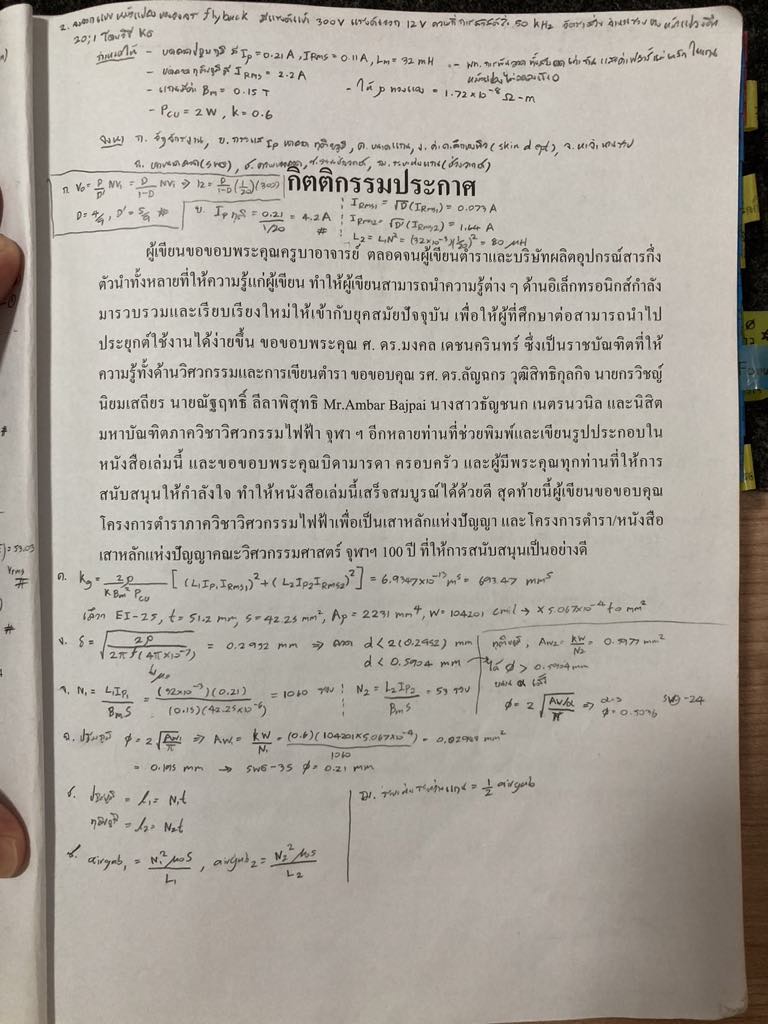 2. ออกแบบ หม้อแปลง flyback มีแรงดันเข้า 300V แรงดันออก 12V ความถี่การสวิตช์ 50 kHz
20:1 โดยวิธี KG
กำหนดให้ - ขดลวดปฐมภูมิ มี Ip = 0.21 A , IRMS = 0.11 A, Lm = 32 mH
- ขดลวดทุติยภูมิมี IRMS = 2.2 A
- แกนมีค่า Bm = 0.15 T - ให้ ρ ทองแดง = 1.72×10⁻⁸ Ω-m
- PCU = 2 W , k = 0.6
ก. Vo = D/D' NVi = D/1-D NVi ⇒ 12 = D/1-D (1/20)(300)
D = 4/9, D' = 5/9 #
ข. Ip ทุติ = 0.21 / 1/20 = 4.2 A #
IRMS1 = √D (IRMS1) = 0.073 A
IRMS2 = √D' (IRMS2) = 1.64 A
L2 = L1N² = (32×10⁻³)(1/20)² = 80 μH
กิตติกรรมประกาศ
ผู้เขียนขอขอบพระคุณครูบาอาจารย์ ตลอดจนผู้เขียนตำราและบริษัทผลิตอุปกรณ์สารกึ่ง
ตัวนำทั้งหลายที่ให้ความรู้แก่ผู้เขียน ทำให้ผู้เขียนสามารถนำความรู้ต่าง ๆ ด้านอิเล็กทรอนิกส์กำลัง
มารวบรวมและเรียบเรียงใหม่ให้เข้ากับยุคสมัยปัจจุบัน เพื่อให้ผู้ที่ศึกษาต่อสามารถนำไป
ประยุกต์ใช้งานได้ง่ายขึ้น ขอขอบพระคุณ ศ. ดร.มงคล เดชนครินทร์ ซึ่งเป็นราชบัณฑิตที่ให้
ความรู้ทั้งด้านวิศวกรรมและการเขียนตำรา ขอขอบคุณ รศ. ดร.ลัญฉกร วุฒิสิทธิกุลกิจ นายกรวิชญ์
นิยมเสถียร นายณัฐฤทธิ์ ลีลาพิสุทธิ Mr.Ambar Bajpai นางสาวธัญชนก เนตรนวนิล และนิสิต
มหาบัณฑิตภาควิชาวิศวกรรมไฟฟ้า จุฬา ฯ อีกหลายท่านที่ช่วยพิมพ์และเขียนรูปประกอบใน
หนังสือเล่มนี้ และขอขอบพระคุณบิดามารดา ครอบครัว และผู้มีพระคุณทุกท่านที่ให้การ
สนับสนุนให้กำลังใจ ทำให้หนังสือเล่มนี้เสร็จสมบูรณ์ได้ด้วยดี สุดท้ายนี้ผู้เขียนขอขอบคุณ
โครงการตำราภาควิชาวิศวกรรมไฟฟ้าเพื่อเป็นเสาหลักแห่งปัญญา และโครงการตำรา/หนังสือ
เสาหลักแห่งปัญญาคณะวิศวกรรมศาสตร์ จุฬาฯ 100 ปี ที่ให้การสนับสนุนเป็นอย่างดี
ค. Kg = 2ρ / K Bm² PCU [ (L1 IP1 IRMS1)² + (L2 IP2 IRMS2)² ] = 6.9347×10⁻¹³ m⁵ = 693.47 mm⁵
เลือก EI-25, t = 51.2 mm, S = 42.25 mm², Ap = 2231 mm⁴, W = 104201 cmil → ×5.067×10⁻⁴ to mm²
ง. δ = √(2ρ / 2πf(4π×10⁻⁷)) = 0.2952 mm ⇒ ลวด d < 2(0.2952) mm
μo d < 0.5904 mm
ทุติยภูมิ, AW2 = kW/N2 = 0.5977 mm²
ได้ φ > 0.5904 mm
ขนาน α เส้น
φ = 2√(AW/α / π) ⇒ α=3 φ = 0.5036 SWG-24
จ. N1 = L1IP1 / BmS = (32×10⁻³)(0.21) / (0.15)(42.25×10⁻⁶) = 1060 รอบ N2 = L2IP2 / BmS = 53 รอบ
ฉ. ปฐมภูมิ φ = 2√(AW1/π) ⇒ AW1 = kW/N1 = (0.6)(104201×5.067×10⁻⁴) / 1060 = 0.02988 mm²
= 0.195 mm → SWG-35 φ = 0.21 mm
ช. ปฐมภูมิ = l1 = N1t
ทุติยภูมิ = l2 = N2t
ซ. airgap1 = N1²μoS / L1 , airgap2 = N2²μoS / L2
ฌ. ระยะห่างระหว่างแกน = 1/2 airgap